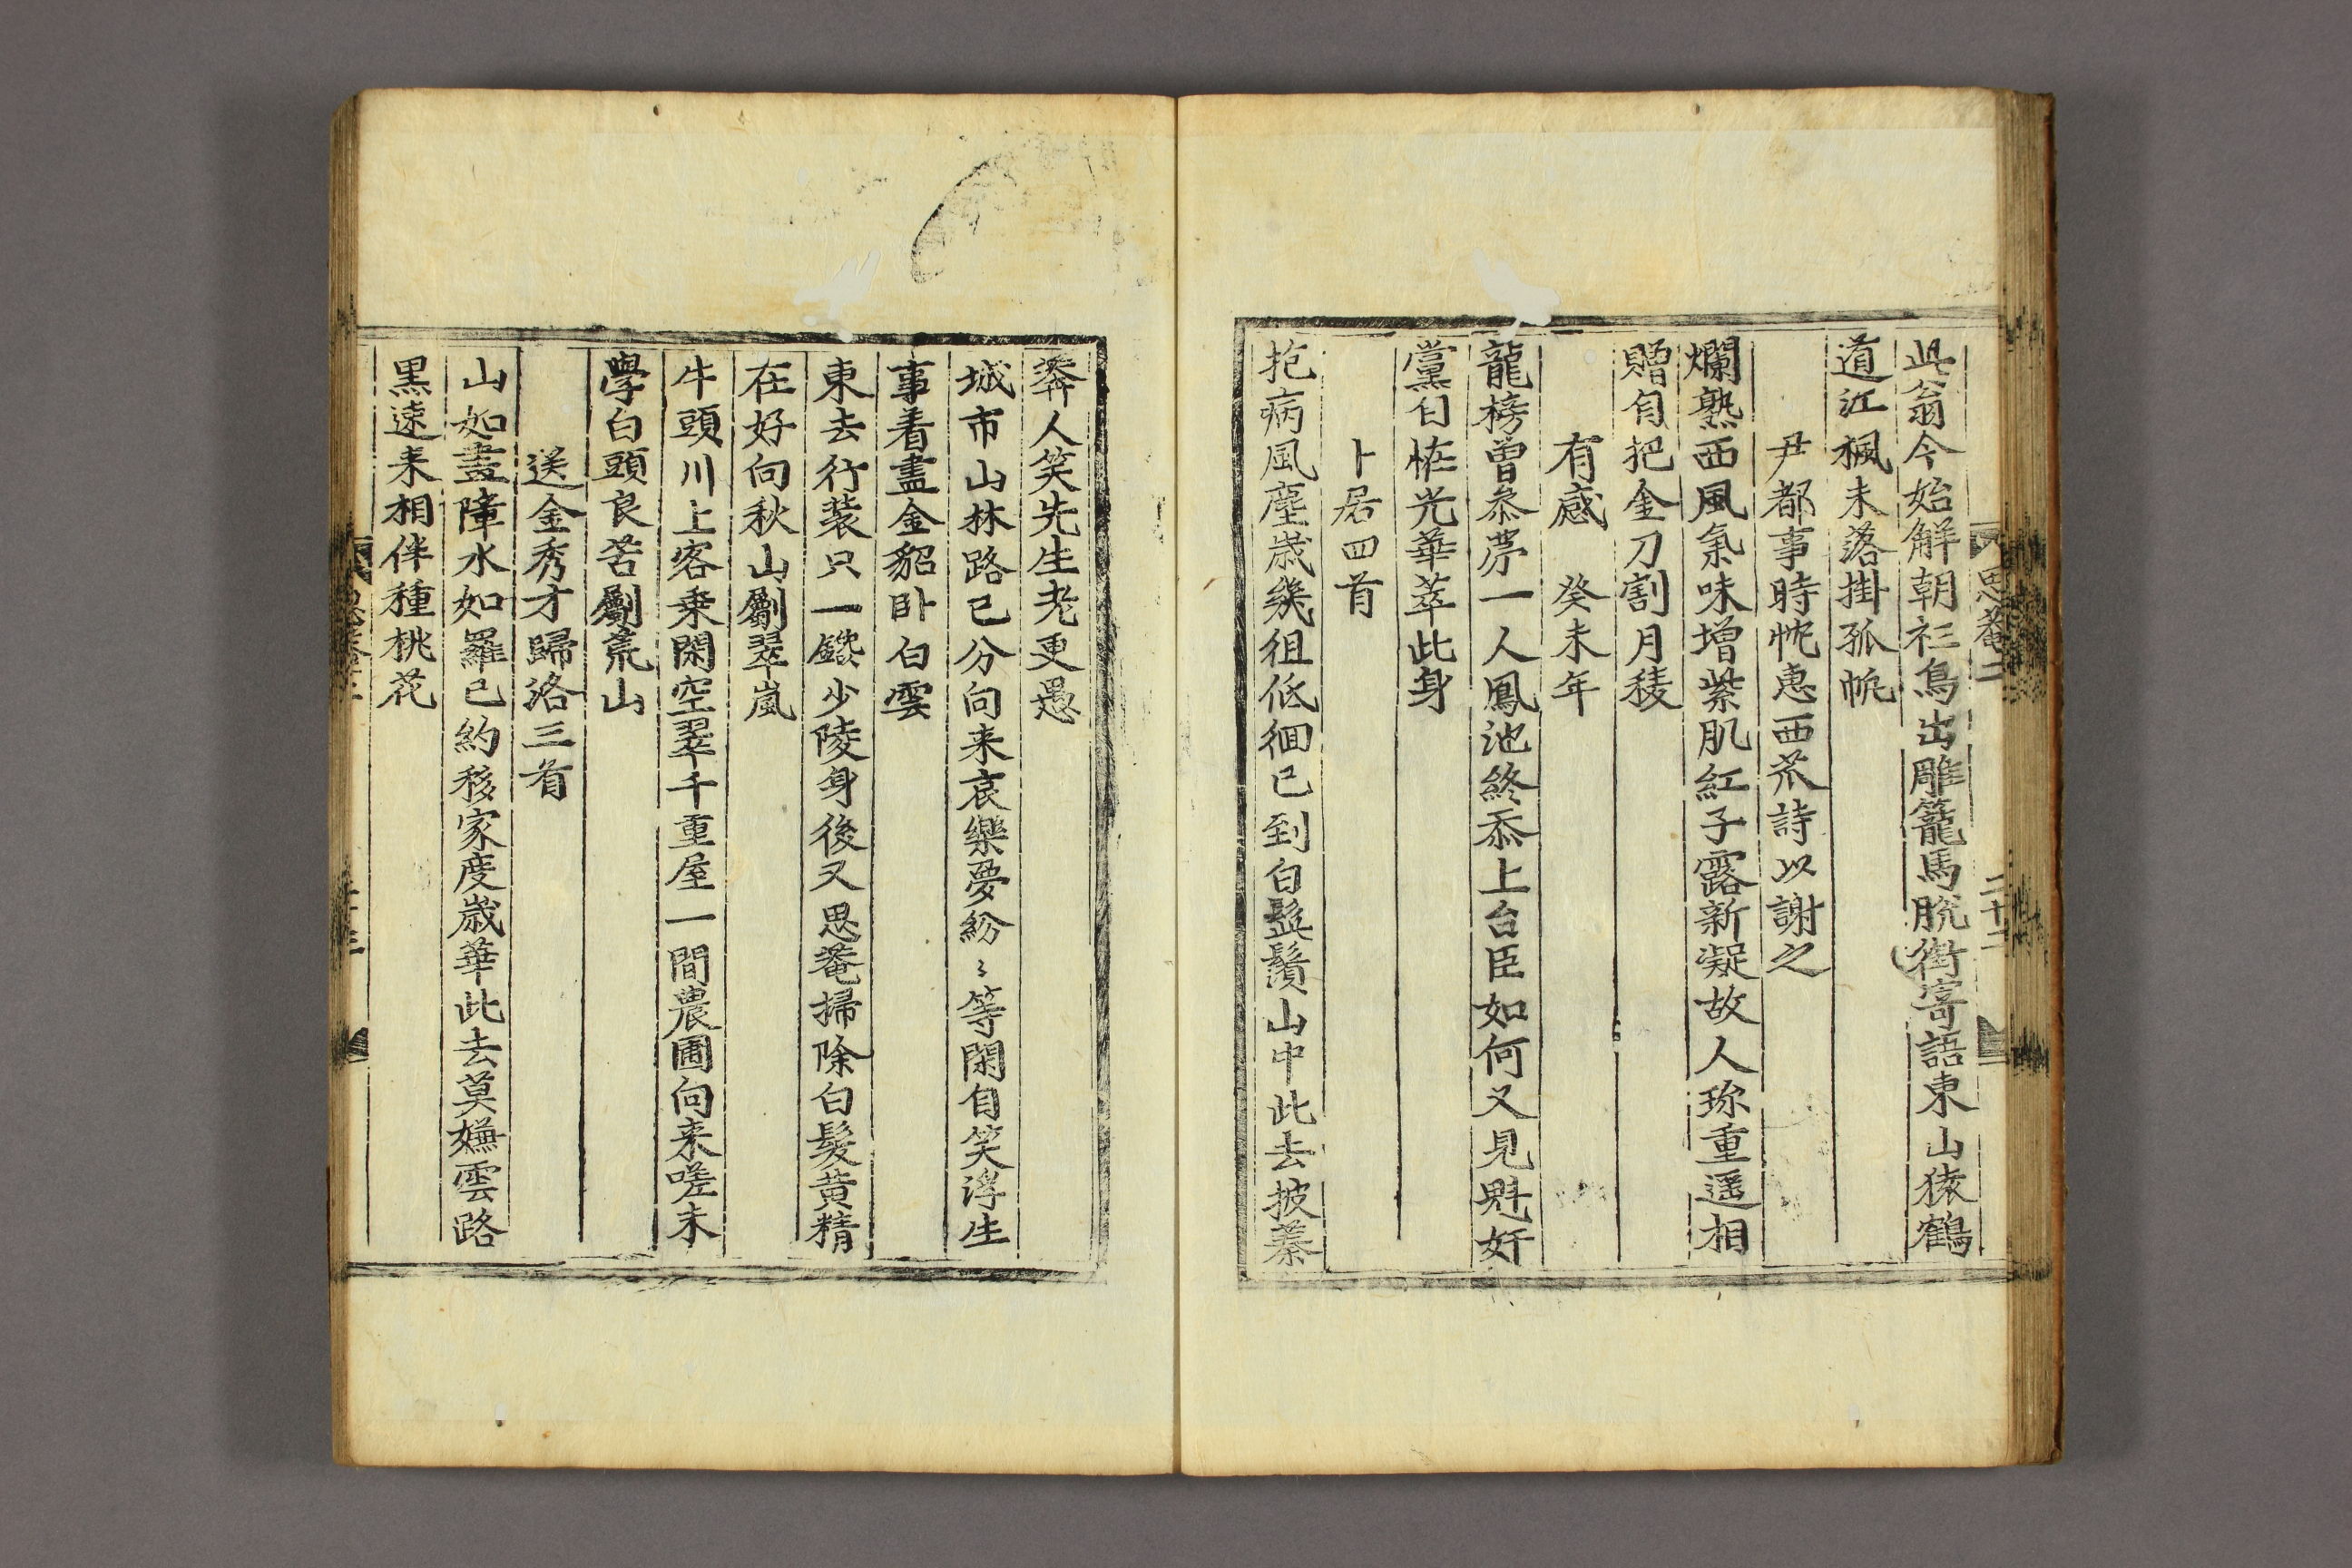 思菴二
二十二
此翁今始解朝衫鳥出雕籠馬脫銜寄語東山猿鶴
道江楓未落掛孤帆
尹都事時忱惠西苽詩以謝之
爛熟西風氣味增紫肌紅子露新凝故人珎重遥相
贈自把金刀割月稜
有感 癸未年
龍榜曾叅第一人鳳池終忝上台臣如何又見魁奸
黨自恠光華萃此身
卜居四首
抱病風塵歲幾徂低徊已到白髭鬚山中此去披蓁
莾人笑先生老更愚
城市山林路已分向来哀樂夢紛〻等閑自笑浮生
事着盡金貂卧白雲
東去行装只一鑱少陵身後又思菴掃除白髮黄精
在好向秋山劚翠嵐
牛頭川上客乗閑空翠千重屋一間農圃向来嗟未
學白頭良苦劚荒山
送金秀才歸洛三首
山如畫障水如羅已約移家度歲華此去莫嫌雲路
黒遠来相伴種桃花